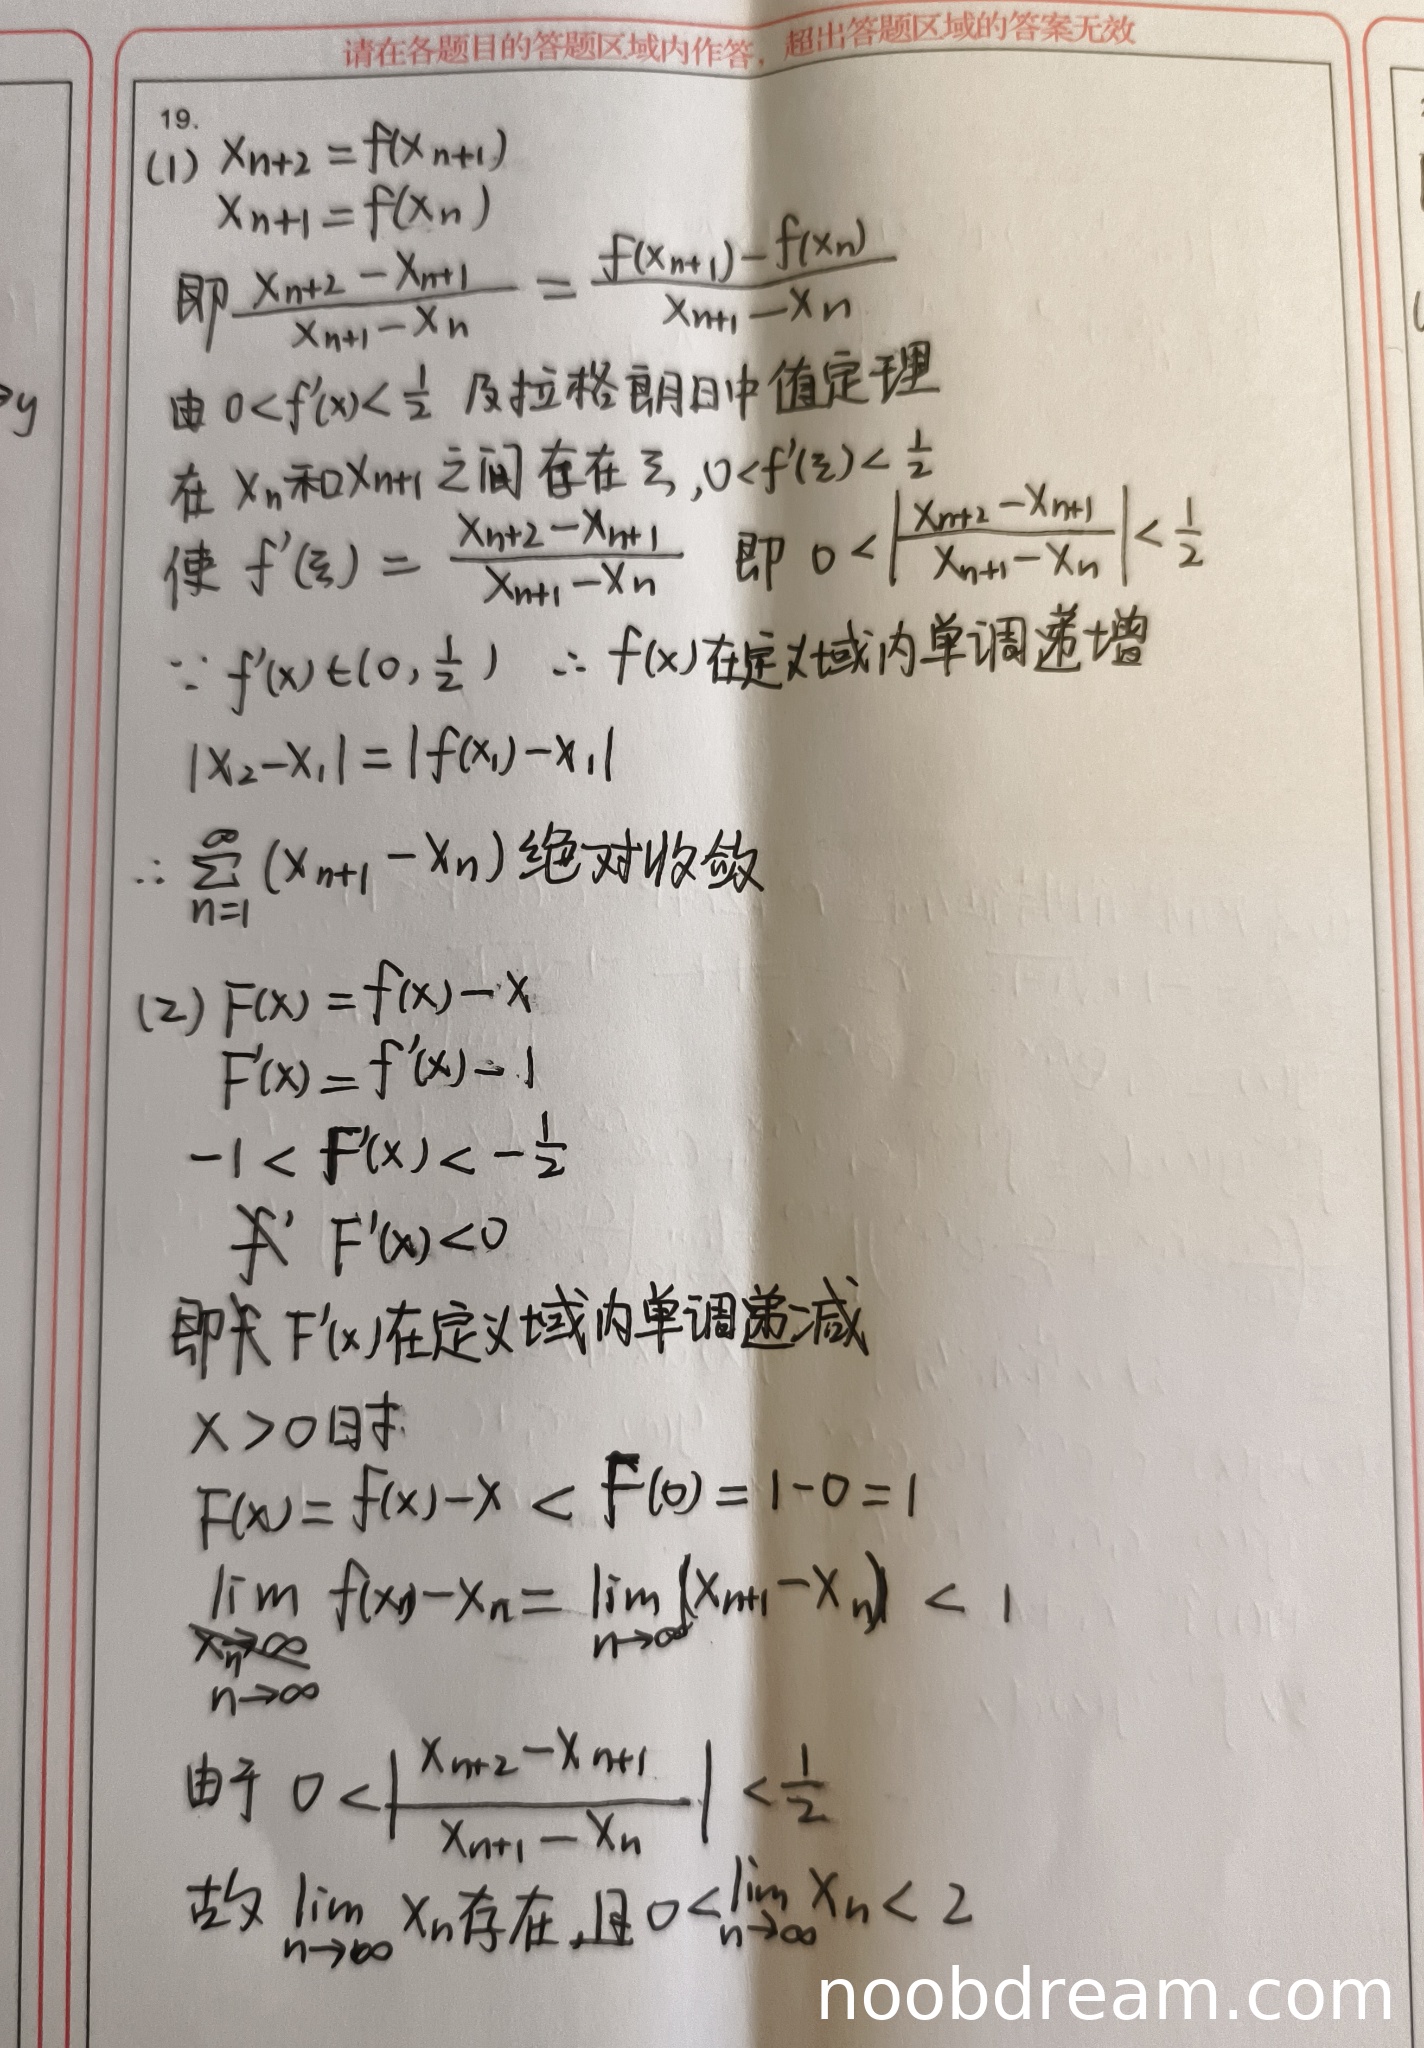 请在各题目的答题区域内作答，超出答题区域的答案无效
19.
(1) x_{n+2} = f(x_{n+1})
x_{n+1} = f(x_n)
即 \frac{x_{n+2} - x_{n+1}}{x_{n+1} - x_n} = \frac{f(x_{n+1}) - f(x_n)}{x_{n+1} - x_n}
由 0 < f'(x) < \frac{1}{2} 及拉格朗日中值定理
→y
在 x_n 和 x_{n+1} 之间存在 ξ, 0 < f'(ξ) < \frac{1}{2}
使 f'(ξ) = \frac{x_{n+2} - x_{n+1}}{x_{n+1} - x_n} 即 0 < |\frac{x_{n+2} - x_{n+1}}{x_{n+1} - x_n}| < \frac{1}{2}
∵ f'(x) ∈ (0, \frac{1}{2}) ∴ f(x) 在定义域内单调递增
|x_2 - x_1| = |f(x_1) - x_1|
∴ \sum_{n=1}^{∞} (x_{n+1} - x_n) 绝对收敛
(2) F(x) = f(x) - x
F'(x) = f'(x) - 1
-1 < F'(x) < -\frac{1}{2}
F'(x) < 0
即 F'(x) 在定义域内单调递减
x > 0 时
F(x) = f(x) - x < F(0) = 1 - 0 = 1
\lim_{n→∞} f(x_n) - x_n = \lim_{n→∞} (x_{n+1} - x_n) < 1
由于 0 < |\frac{x_{n+2} - x_{n+1}}{x_{n+1} - x_n}| < \frac{1}{2}
故 \lim_{n→∞} x_n 存在, 且 0 < \lim_{n→∞} x_n < 2
noobdream.com